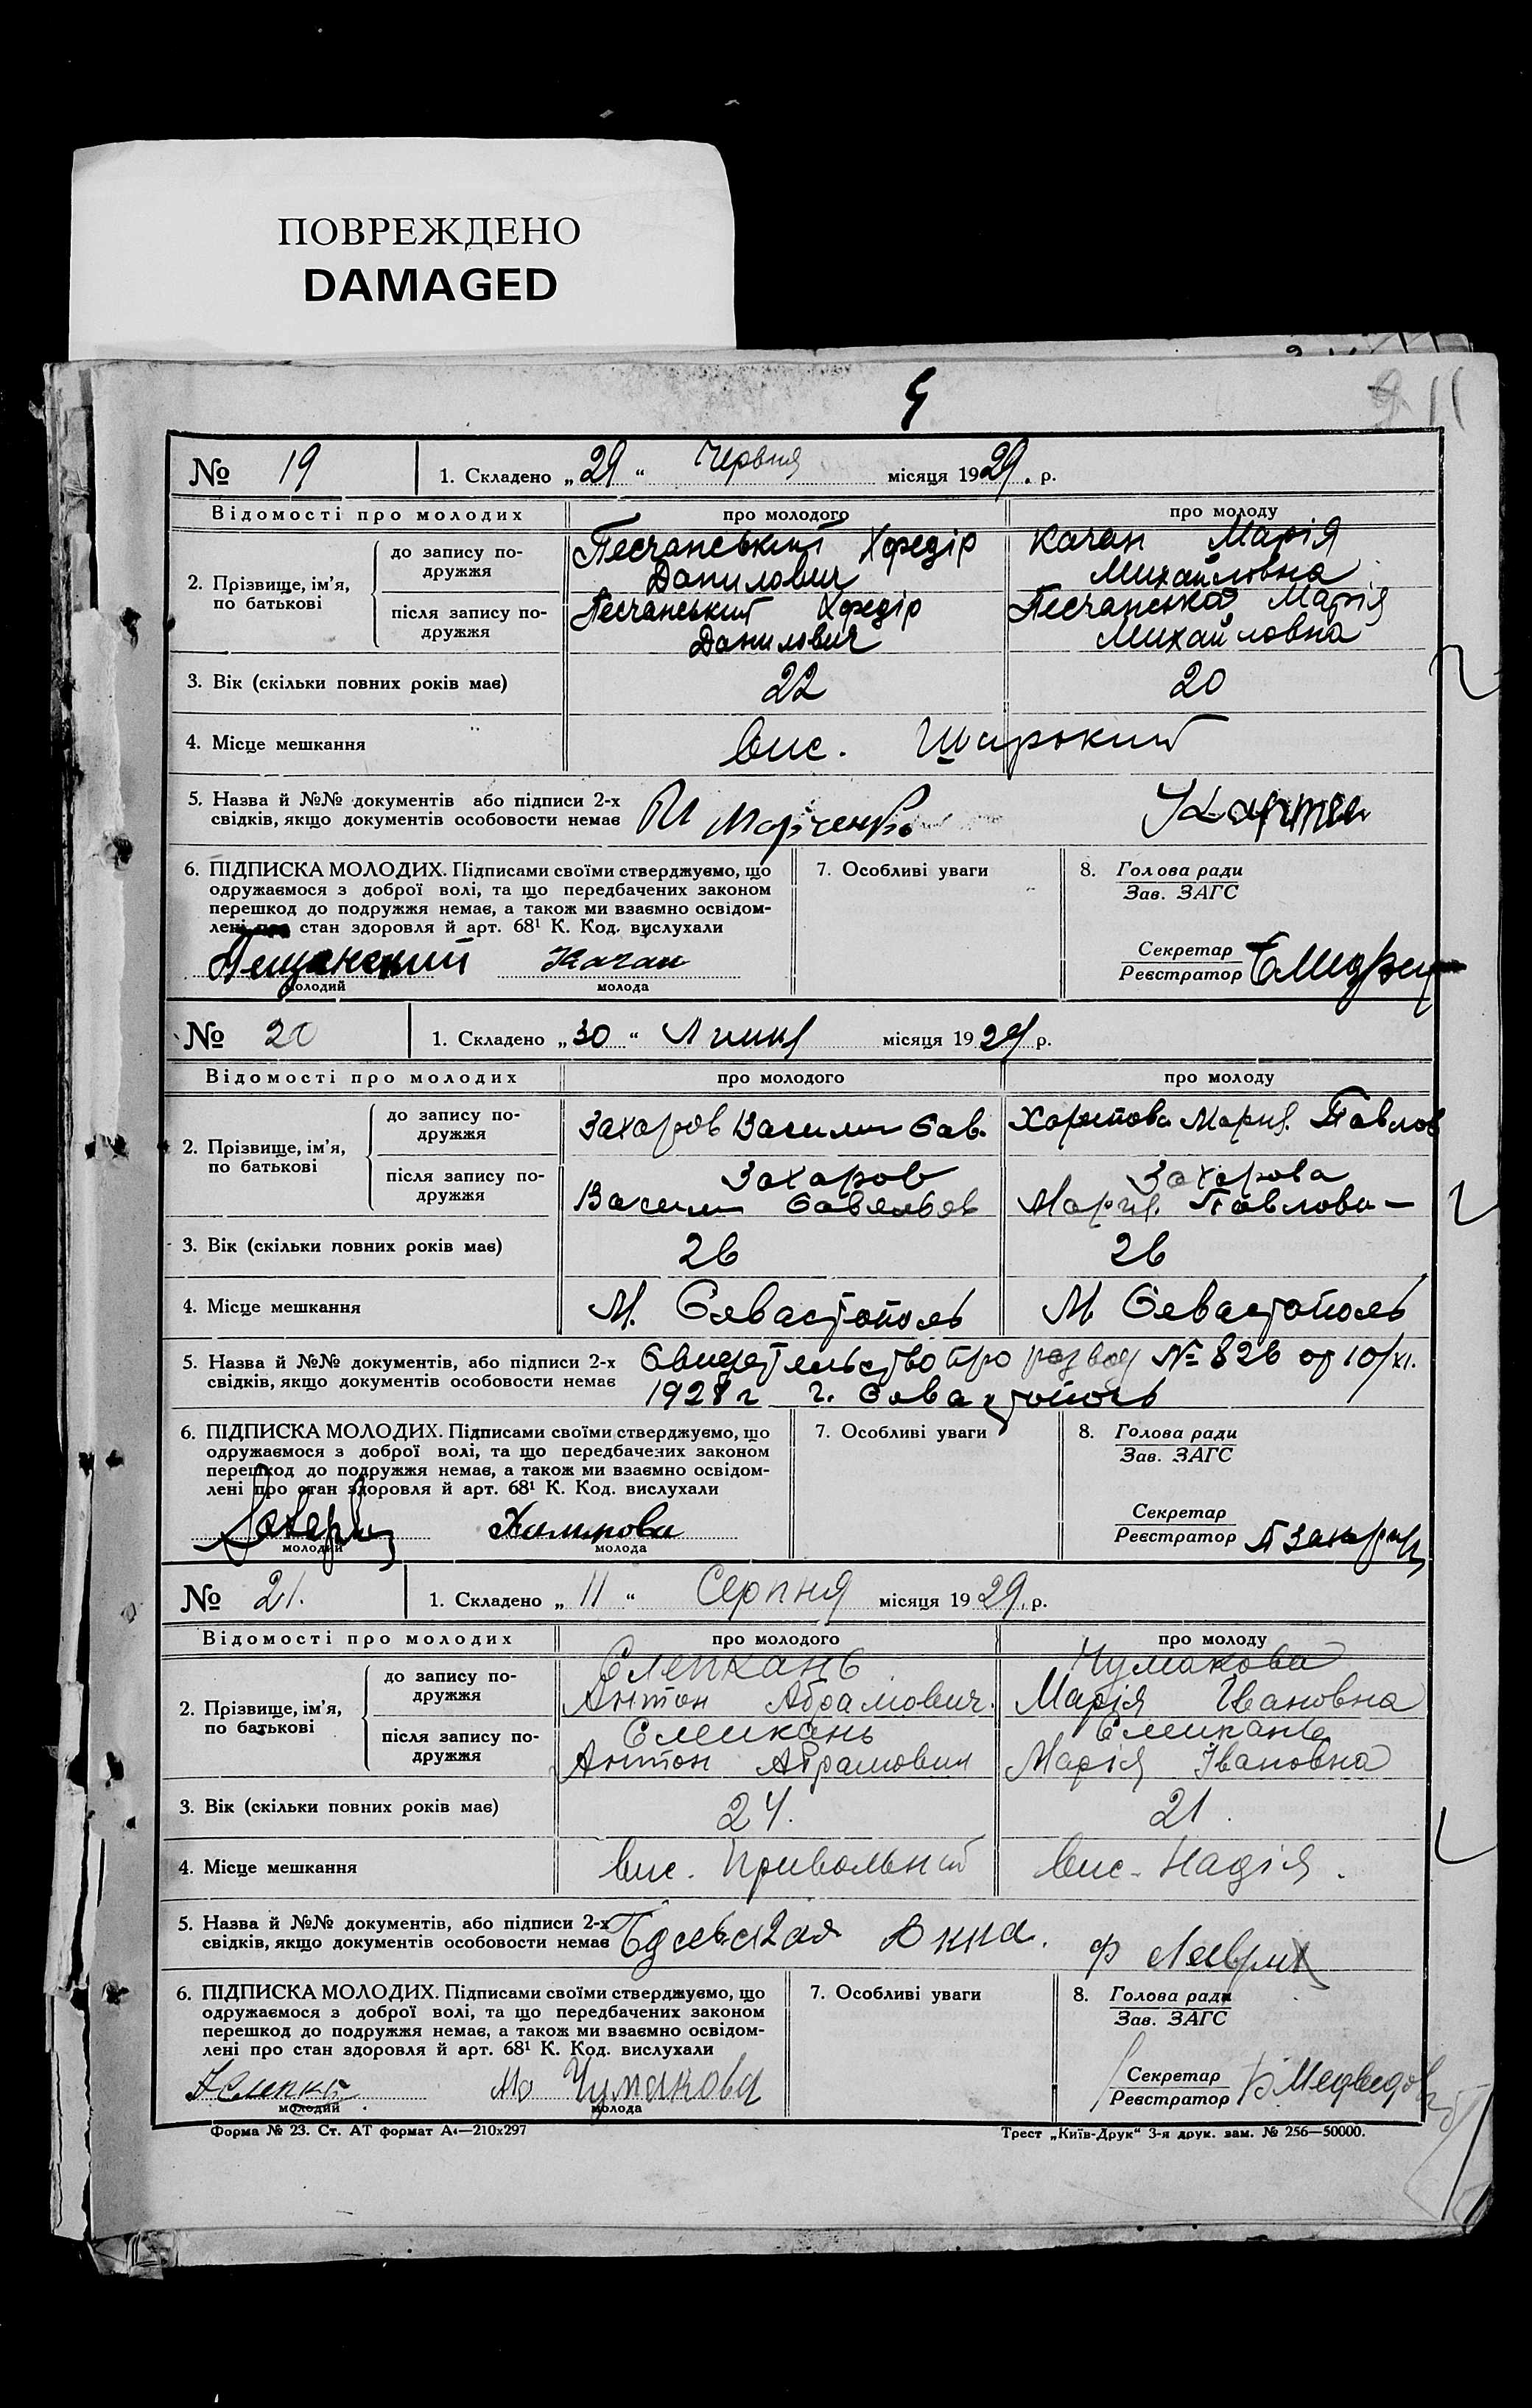 ПОВРЕЖДЕНО
DAMAGED
№ 19 1. Складено „29“ Червня місяця 1929. р.
Відомості про молодих про молодого про молоду
2. Прізвище, ім’я, по батькові
до запису по-
дружжя
Песчанський Хфедір Качан Марія
Данилович Михайловна
після запису по-
дружжя
Песчанський Хфедір Песчанська Марія
Данилович Михайловна
3. Вік (скільки повних років має) 22 20
4. Місце мешкання вис. Широкий
5. Назва й №№ документів або підписи 2-х
свідків, якщо документів особовости немає
Марченко
6. ПІДПИСКА МОЛОДИХ. Підписами своїми стверджуємо, що
одружаємося з доброї волі, та що передбачених законом
перешкод до подружжя немає, а також ми взаємно освідом-
лені про стан здоровля й арт. 68¹ К. Код. вислухали
Пещанский Качан
молодий молода
7. Особливі уваги
8. Голова ради
Зав. ЗАГС
Секретар
Реєстратор
№ 20 1. Складено „30“ Липня місяця 1929 р.
Відомості про молодих про молодого про молоду
2. Прізвище, ім’я, по батькові
до запису по-
дружжя
Захаров Васили Сав. Харитова Мария Павлов
після запису по-
дружжя
Захаров Захарова
Васили Савельев Мария Павлова
3. Вік (скільки повних років має) 26 26
4. Місце мешкання М. Севастополь М Севастополь
5. Назва й №№ документів, або підписи 2-х
свідків, якщо документів особовости немає
Свидетельство про розвод № 826 от 10/XI.
1928 г г. Севастополь
6. ПІДПИСКА МОЛОДИХ. Підписами своїми стверджуємо, що
одружаємося з доброї волі, та що передбачених законом
перешкод до подружжя немає, а також ми взаємно освідом-
лені про стан здоровля й арт. 68¹ К. Код. вислухали
молодий молода
7. Особливі уваги
8. Голова ради
Зав. ЗАГС
Секретар
Реєстратор
№ 21. 1. Складено „11“ Серпня місяця 1929. р.
Відомості про молодих про молодого про молоду
2. Прізвище, ім’я, по батькові
до запису по-
дружжя
Слепкань Чумакова
Антон Абрамович. Марія Івановна
після запису по-
дружжя
Слипкань Слипкань
Антон Абрамович Марія Івановна
3. Вік (скільки повних років має) 24. 21.
4. Місце мешкання вис. Привольний вис. Надія.
5. Назва й №№ документів, або підписи 2-х
свідків, якщо документів особовости немає
Анна. Ф
6. ПІДПИСКА МОЛОДИХ. Підписами своїми стверджуємо, що
одружаємося з доброї волі, та що передбачених законом
перешкод до подружжя немає, а також ми взаємно освідом-
лені про стан здоровля й арт. 68¹ К. Код. вислухали
Чумакова
молодий молода
7. Особливі уваги
8. Голова ради
Зав. ЗАГС
Секретар
Реєстратор
Форма № 23. Ст. АТ формат А4—210х297 Трест „Київ-Друк“ 3-я друк. зам. № 256—50000.